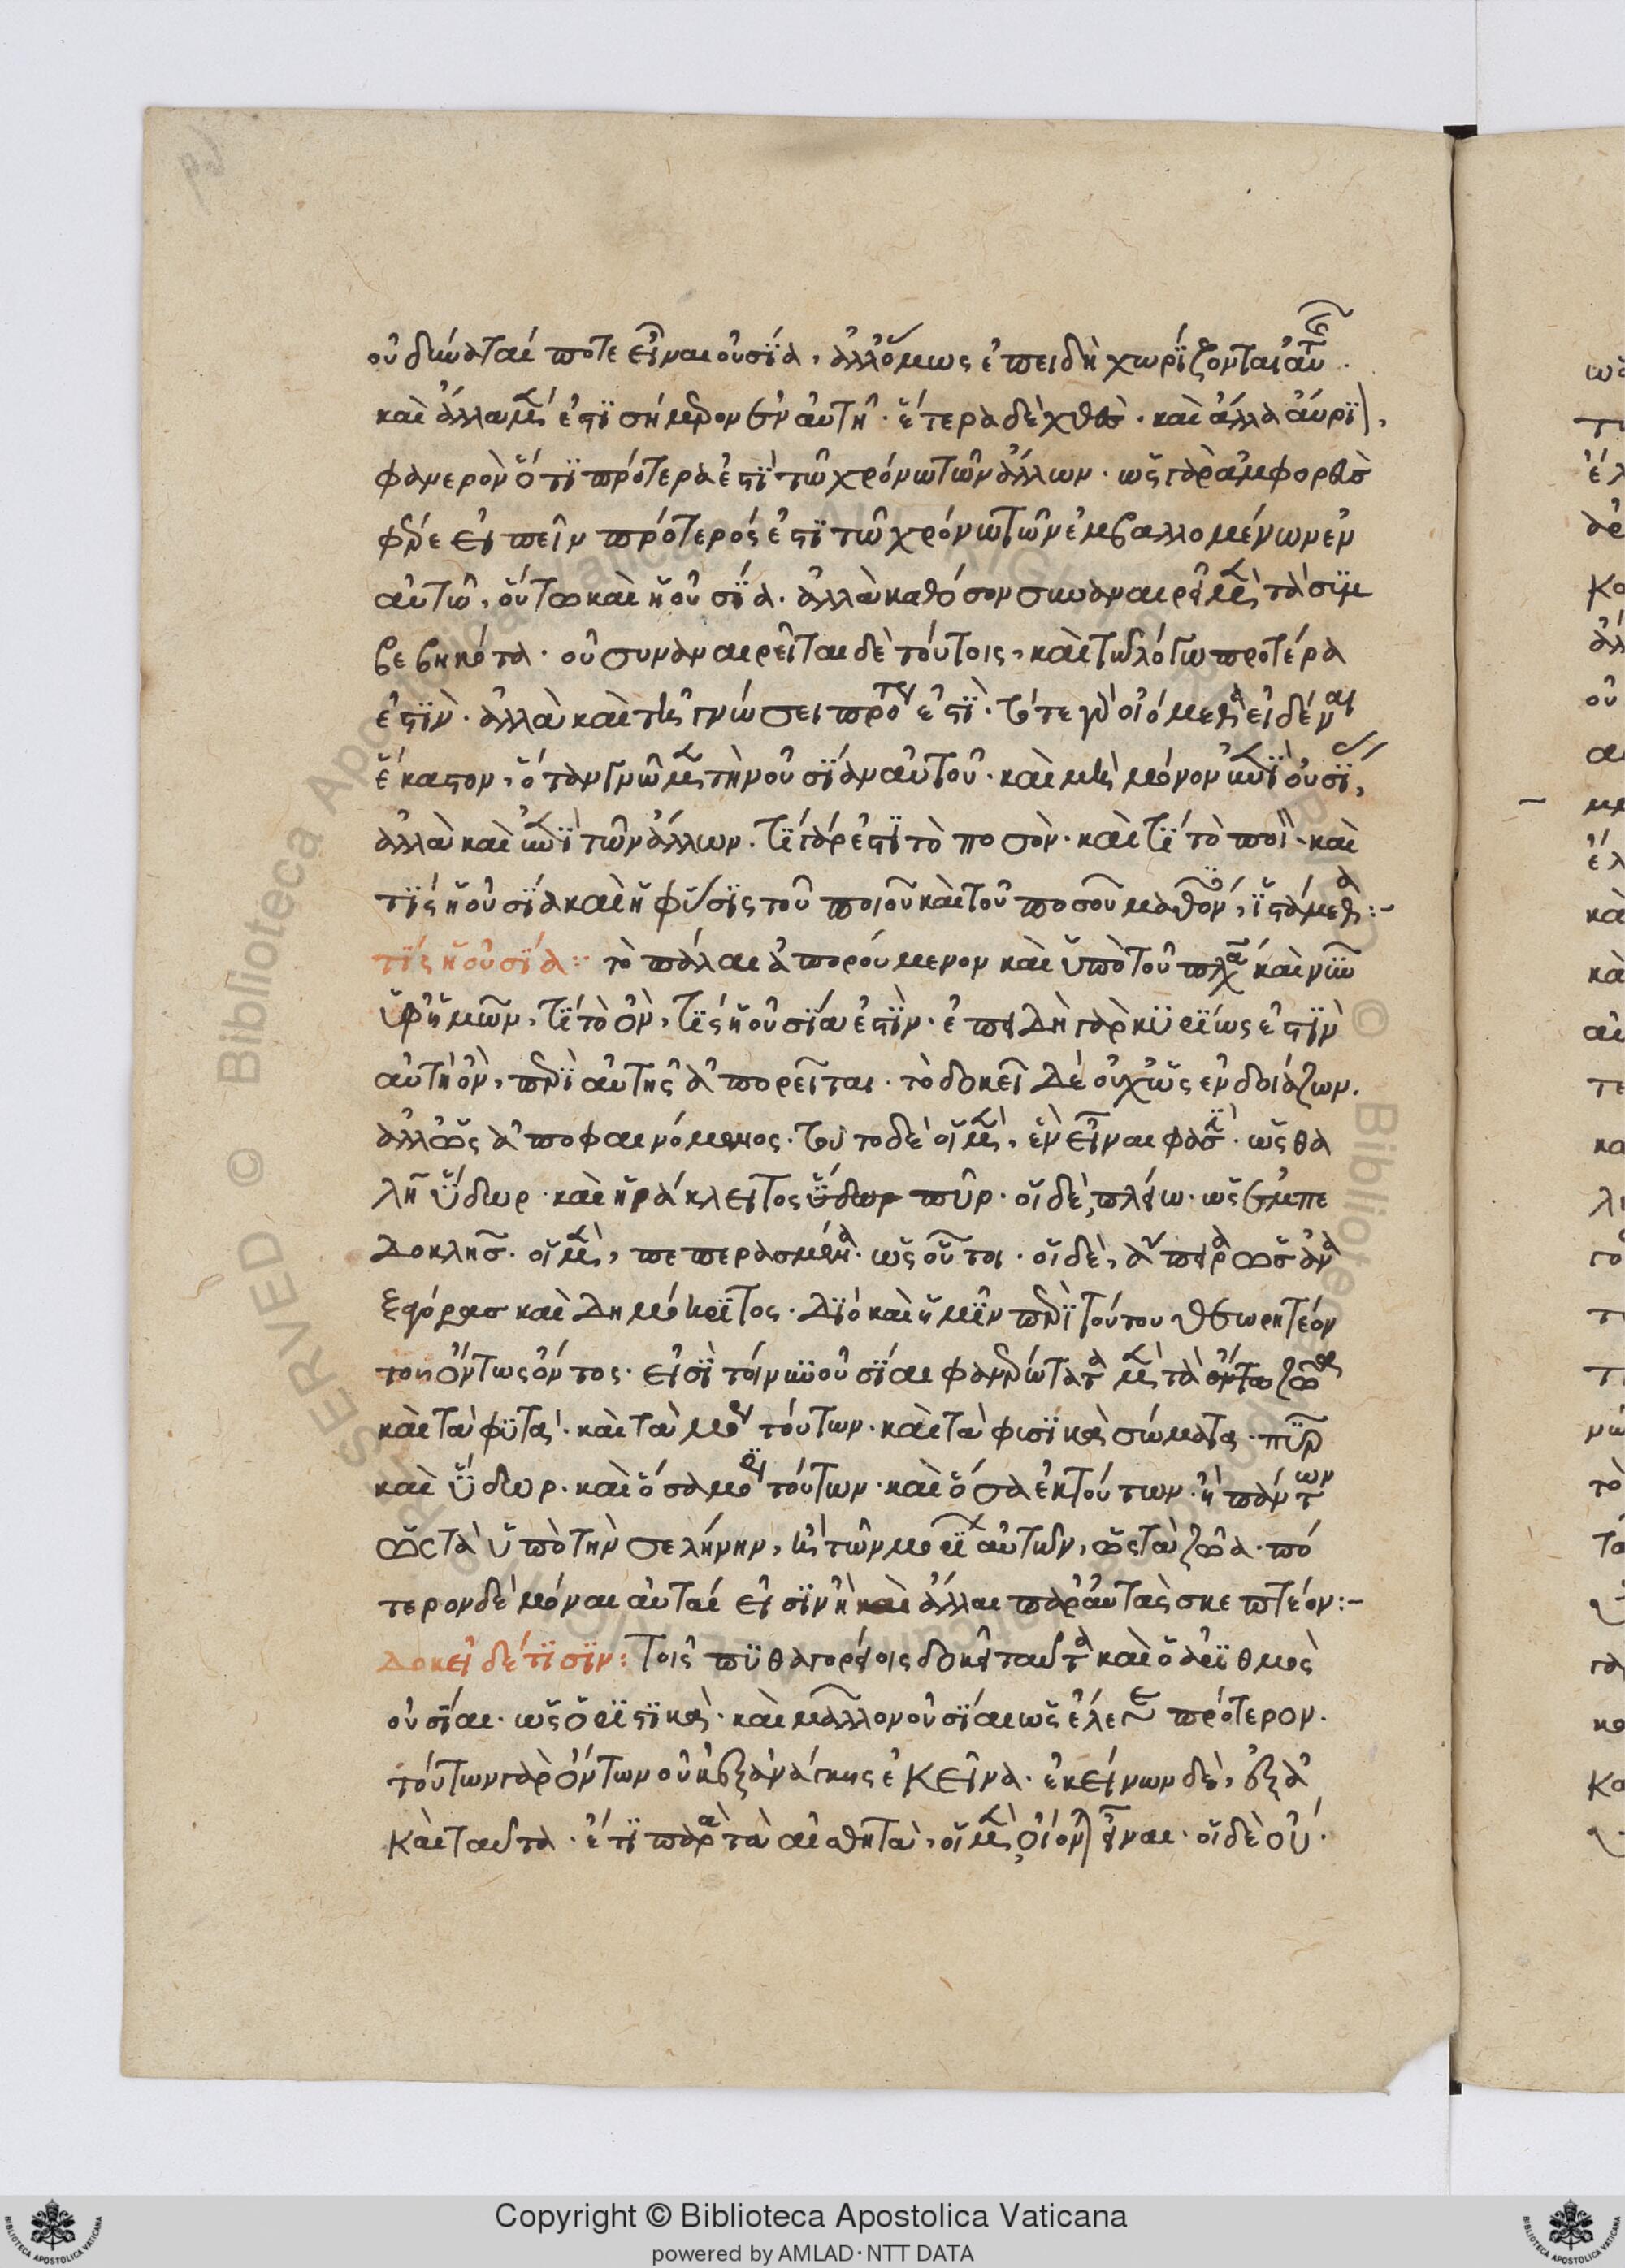 οὐ δύναταί ποτε εἶναι οὐσία, ἀλλ' ὅμως ἐπειδὴ χωρίζονται αὐτῆς.
καὶ ἄλλα μέν ἐστι σήμερον ἐν αὐτῆ· ἕτερα δὲ χθὲς· καὶ ἄλλα αὔριον,
φανερὸν ὅτι πρότερά ἐστι τῶ χρόνω τῶν ἄλλων· ὡς γὰρ ἀμφορεὺς
φέρε εἰπεῖν πρότερός ἐστι τῶ χρόνω τῶν ἐμβαλλομένων ἐν
αὐτῶ, οὕτω καὶ ἡ οὐσία. ἀλλὰ καθόσον συναναιρεῖ μὲν τὰ συμ
βεβηκότα· οὐ συναναιρεῖται δὲ τούτοις, καὶ τῶ λόγω προτέρα
ἐστὶν· ἀλλὰ καὶ τῆ γνώσει προτέρα ἐστὶ· τότε γὰρ οἰόμεθα εἰδέναι
ἕκαστον, ὅταν γνῶμεν τὴν οὐσίαν αὐτοῦ· καὶ μὴ μόνον ἐπὶ οὐσίας,
ἀλλὰ καὶ ἐπὶ τῶν ἄλλων. τί γάρ ἐστι τὸ ποσὸν· καὶ τί τὸ ποιὸν· καὶ
τίς ἡ οὐσία καὶ ἡ φύσις τοῦ ποιοῦ καὶ τοῦ ποσοῦ μαθόντες, ἱστάμεθα:-
τίς ἡ οὐσία: τὸ πάλαι ἀπορούμενον καὶ ὑπὸ τοῦ πλάτωνος καὶ νῦν
ὑφ' ἡμῶν, τί τὸ ὄν, τίς ἡ οὐσία ἐστὶν· ἐπειδὴ γὰρ κυρίως ἐστὶν
αὐτὴ ὂν, περὶ αὐτῆς ἀπορεῖται. τὸ δοκεῖ δὲ οὐχ ὡς ἐνδοιάζων.
ἀλλ' ὡς ἀποφαινόμενος. τοῦτο δὲ οἱ μὲν, ἓν εἶναι φασὶ· ὡς θα
λῆς ὕδωρ· καὶ ἡράκλειτος ὕδωρ πῦρ. οἱ δὲ, πλείω· ὡς ἐμπε
δοκλῆς. οἱ μὲν, πεπερασμένα· ὡς οὗτοι. οἱ δὲ, ἄπειρα ὡς ἀνα
ξαγόρας καὶ δημόκριτος. διὸ καὶ ἡμῖν περὶ τούτου θεωρητέον
τοῦ ὄντως ὄντος. εἰσὶ τοίνυν οὐσίαι φανερώτατα μὲν τὰ ὄντα ζῶα
καὶ τὰ φυτὰ· καὶ τὰ μόρια τούτων· καὶ τὰ φυσικὰ σώματα· πῦρ
καὶ ὕδωρ· καὶ ὅσα μόρια τούτων· καὶ ὅσα ἐκ τούτων· ἢ πάντων
ὡς τὰ ὑπὸ τὴν σελήνην, ἢ τῶν μορίων αὐτῶν, ὡς τὰ ζῶα. πό
τερον δὲ μόναι αὐταί εἰσὶν ἢ καὶ ἄλλαι παρ' αὐτὰς σκεπτέον:-
δοκεῖ δέ τισιν: τοῖς πυθαγορείοις δοκεῖ ταῦτα καὶ ὁ ἀριθμὸς
οὐσίαι· ὡς ὁριστικὰ· καὶ μᾶλλον οὐσίαι ὡς ἔλεγε πρότερον.
τούτων γὰρ ὄντων οὐκ ἐξ ἀνάγκης ἐκεῖνα· ἐκείνων δὲ, ἐξ ἀ
καὶ ταῦτα· ἔτι παρὰ τὰ αἰσθητὰ, οἱ μὲν οἴονται εἶναι. οἱ δὲ οὔ.